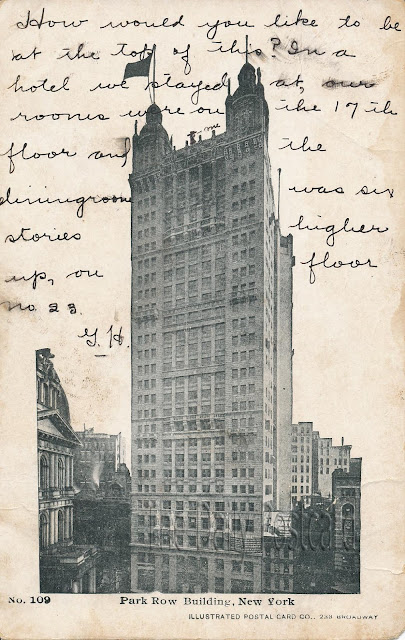 How would you like to be
at the top of this? In a
hotel we stayed at, our
rooms were on the 17 th
floor and the
diningroom was six
stories higher
up, on floor
no 23.
G. H.
No. 109 Park Row Building, New York
ILLUSTRATED POSTAL CARD CO., 233 BROADWAY